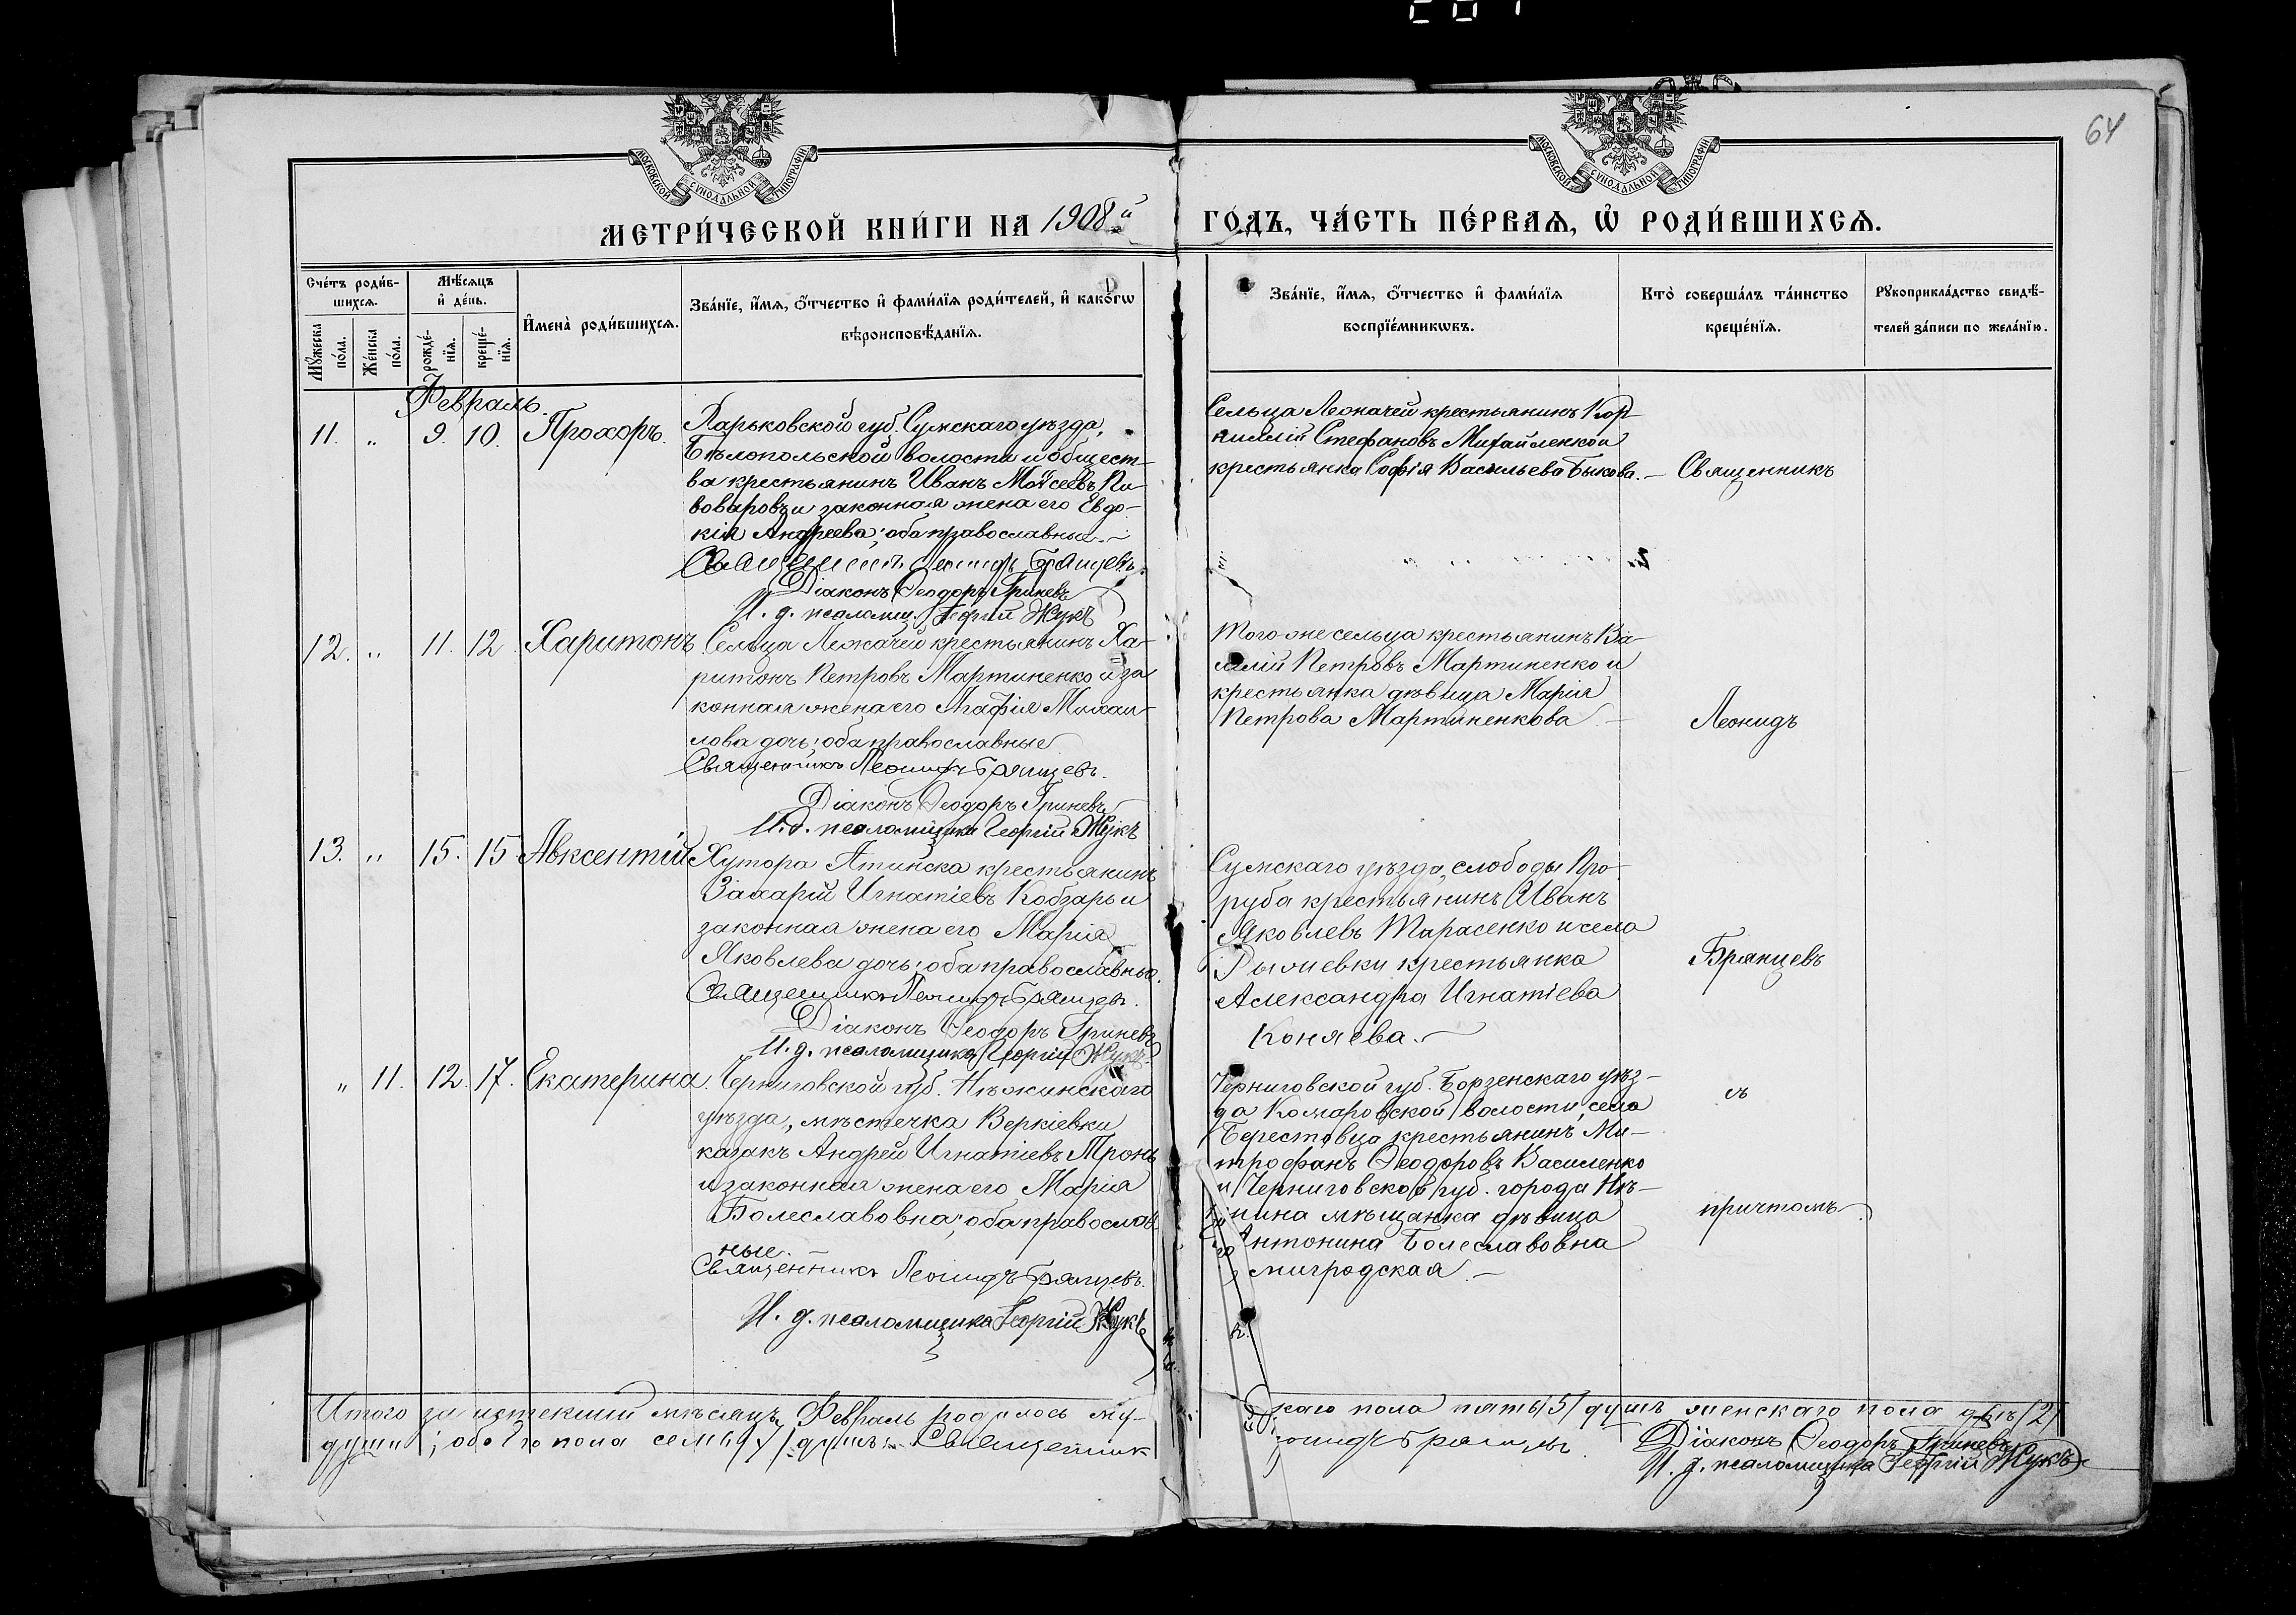 64
МОСКОВСКОЙ СУНОДАЛЬНОЙ ТИПОГРАФІИ
МОСКОВСКОЙ СУНОДАЛЬНОЙ ТИПОГРАФІИ
МЕТРИ́ЧЕСКОЙ КНИ́ГИ НА 1908й
ГО́ДЪ, ЧА́СТЬ ПЕ́РВАѦ, Ѡ҆ РОДИ́ВШИХСѦ.
Сче́тъ роди́в-
шихсѧ.
Мѣ́сѧцъ
и҆ де́нь.
И҆мена̀ роди́вшихсѧ.
Зва́нїе, и҆́мѧ, ѻ҆́тчество и҆ фами́лїѧ роди́телей, и҆ како́гѡ
вѣроисповѣ́данїѧ.
Мꙋ́жеска
по́ла.
Же́нска
по́ла.
рожде́-
нїѧ.
креще́-
нїѧ.
Зва́нїе, и҆́мѧ, ѻ҆́тчество и҆ фами́лїѧ
воспрїе́мникѡвъ.
Кто̀ соверша́лъ та́инство
креще́нїѧ.
Рꙋкоприкла́дство свидѣ́-
телей за́писи по жела́нїю.
Февраль.
11. „ 9. 10. Прохоръ.
Харьковской губ. Сумскаго уѣзда,
Бѣлопольской волости и общест-
ва крестьянинъ Иванъ Моѵсеевъ Пи-
воваровъ и законная жена его Евдо-
кія Андреева; оба православные.
Священникъ Леонидъ Брянцевъ.
Діаконъ Ѳеодоръ Гриневъ
И. д. псаломщ. Георгій Жукъ
Сельца Лежачей крестьянинъ Кор-
нилій Стефановъ Михайленко и
крестьянка Софія Васильева Быкова. —
Священникъ
12. „ 11. 12. Харитонъ.
Сельца Лежачей крестьянинъ Ха-
ритонъ Петровъ Мартиненко и за
конная жена его Агафія Михаи-
лова дочь; оба православные
Священникъ Леонидъ Брянцевъ.
Діаконъ Ѳеодоръ Гриневъ
И. д. псаломщика Георгій Жукъ
Того-же сельца крестьянинъ Ва-
силій Петровъ Мартиненко и
крестьянка дѣвица Марія
Петрова Мартиненкова —
Леонидъ
13. „ 15. 15 Авксентій
Хутора Атинска крестьянинъ
Захарій Игнатіевъ Кобзарь и
законная жена его Марія
Яковлева дочь; оба православные.
Священникъ Леонидъ Брянцевъ.
Діаконъ Ѳеодоръ Гриневъ
И. д. псаломщика Георгій Жукъ
Сумскаго уѣзда, слободы Про-
руба крестьянинъ Иванъ
Яковлевъ Тарасенко и села
Рыжевки крестьянка
Александра Игнатіева
Коняева. —
Брянцевъ
„ 11. 12. 17. Екатерина.
Черниговской губ. Нѣжинскаго
уѣзда, мѣстечка Веркіевки
казакъ Андрей Игнатіевъ Тронь
и законная жена его Марія
Болеславовна; оба православ
ные. —
Священникъ Леонидъ Брянцевъ.
И. д. псаломщика Георгій Жукъ
Черниговской губ. Борзенскаго уѣз-
да Комаровской волости, села
Берестовца крестьянинъ Ми-
трофанъ Ѳеодоровъ Василенко
и Черниговской губ. города Нѣ-
жина мѣщанка дѣвица
Антонина Болеславовна
мигродская. —
съ
причтомъ.
Итого за истекший мѣсяцъ Февраль родилось му-
каго пола пять /5/ душъ женскаго пола двѣ /2/
души; обоего пола семь /7/ душъ. Священник
Леонидъ Брянцевъ.
Діаконъ Ѳеодоръ Гриневъ
И. д. псаломщика Георгій Жукъ